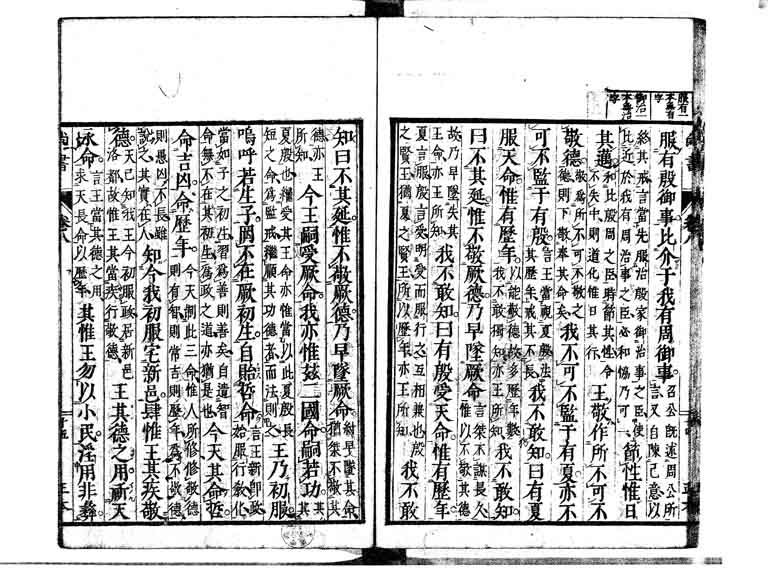 服有一
本無有
字
御治一
本無治
字
服有殷御事比介于我有周御事 召公既述周公所
言又自陳己意以
終其戒言當先服治殷家御治事之臣使
比近於我有周治事之臣必和協乃可一 節性惟日
其邁 和比殷周之臣時節其性令
不失中則道化惟日其行 王敬作所不可不
敬德 敬為所不可不敬之
德則下敬奉其命矣 我不可不監于有夏亦不
可不監于有殷 言王當視夏殷法
其歷年戒其不長 我不敢知曰有夏
服天命惟有歷年 以能敬德故多歷年數
我不敢獨知亦王所知 我不敢知
曰不其延惟不敬厥德乃早墜厥命 言桀不謀長久
惟以不敬其德
故乃早墜失其
王命亦王所知 我不敢知曰有殷受天命惟有歷年
夏言服殷言受明受而服行之互相兼也殷
之賢王猶夏之賢王所以歷年亦王所知 我不敢
知曰不其延惟不敬厥德乃早墜厥命 紂早墜其命
猶桀不敬其
德亦王
所知 今王嗣受厥命我亦惟茲二國命嗣若功 其
夏殷也繼受其王命亦惟當以此夏殷長
短之命為監戒繼順其功德者而法則之 王乃初服
嗚呼若生子罔不在厥初生自貽哲命 言王新即政
始服行教化
當如子之初生習為善則善矣自遺智
命無不在其初生為政之道亦猶是也 今天其命哲
命吉凶命歷年 今天制此三命惟人所修修敬德
則有智則常吉則歷年為不敬德
則愚凶不長雖
說之其實在人 知今我初服宅新邑肆惟王其疾敬
德 天已知我王今初服政居新邑
洛都故惟王其當疾行敬德 王其德之用祈天
永命 言王當其德之用
求天長命以歷年 其惟王勿以小民淫用非彝
尚書 卷八 十五